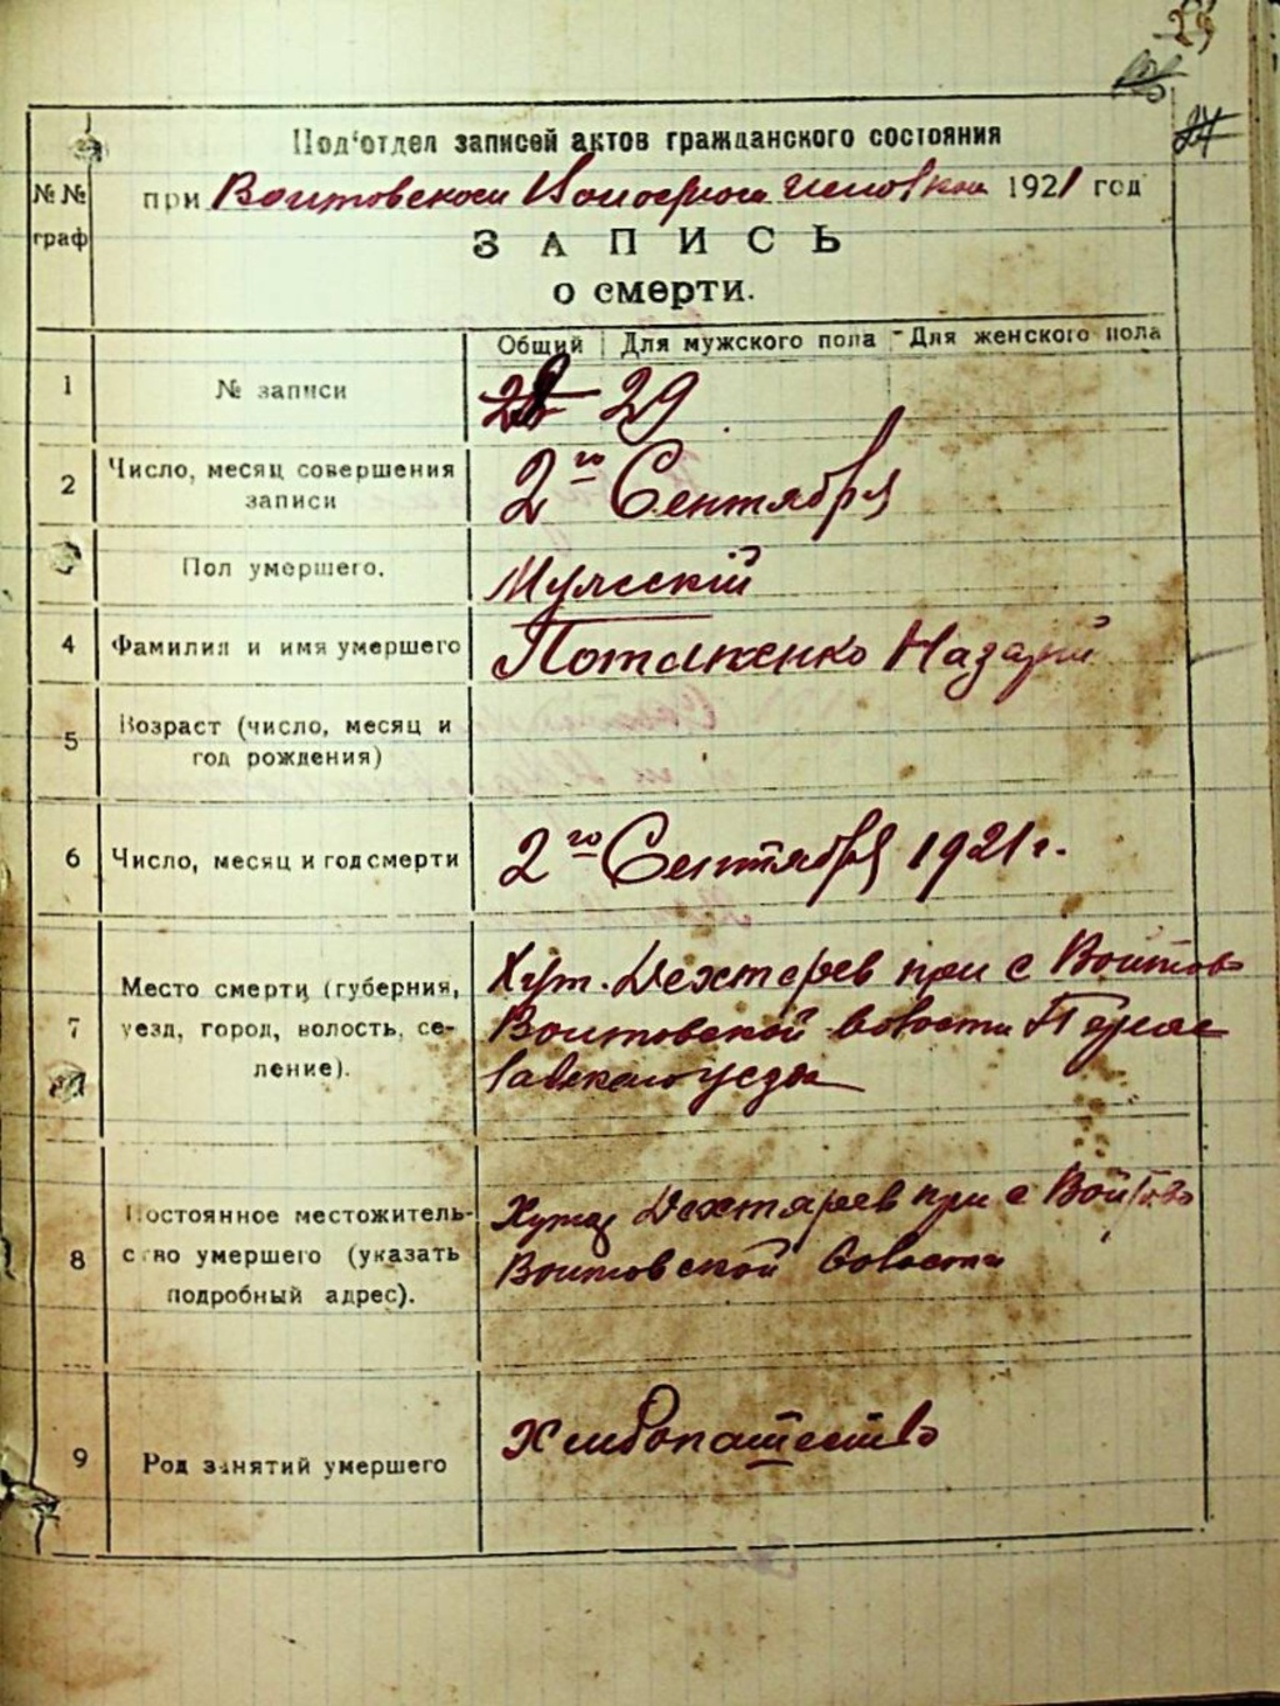 29
24
Под'отдел записей актов гражданского состояния
№№ граф
при Воитовском Волосном Исполком 1921 год
ЗАПИСЬ
о смерти.
Общий Для мужского пола Для женского пола
1 № записи 28 29
2 Число, месяц совершения записи 2го Сентября
Пол умершего. Мужескій
4 Фамилия и имя умершего Потапенко Назарій
5 Возраст (число, месяц и год рождения)
6 Число, месяц и год смерти 2го Сентября 1921 г.
7 Место смерти (губерния, уезд, город, волость, се-
ление).
Хут. Дехтярев при с Воитов
Воитовской волости Переяс
лавского уезда
8 Постоянное местожитель-
ство умершего (указать
подробный адрес).
Хутор Дехтярев при с Войтов
Воитовской волости
9 Род занятий умершего Хлибопашество